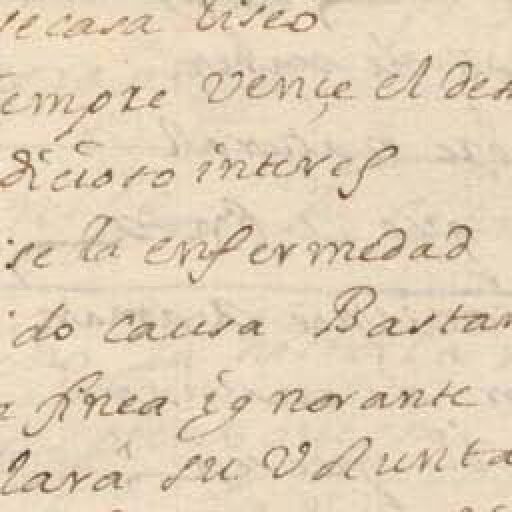 secasa liseo
iempre vençe el des
dicioso interes
ise la enfermedad
ido causa Bastan
finea ignorante
lara su Volunta